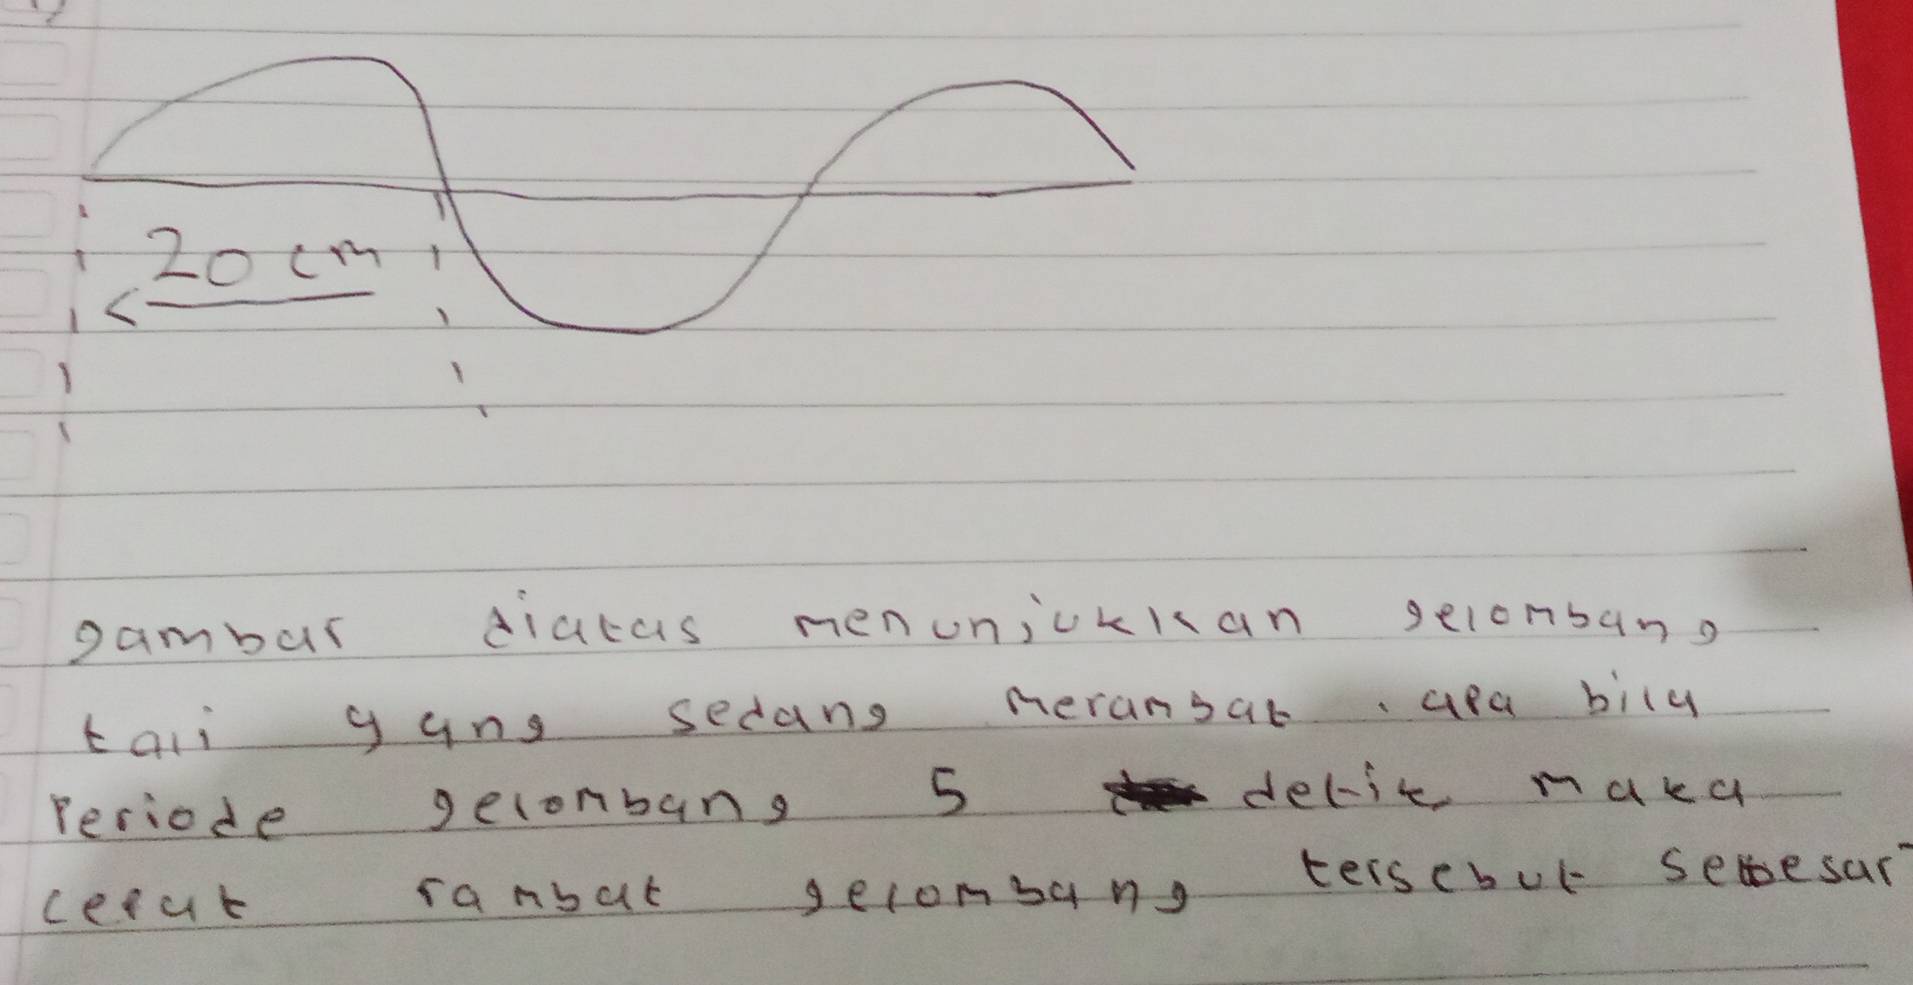 20 cm
gambar diatas menunjukkan gelombang
tali yang sedang merambat . apa bila
Periode gelombang 5 detik maka
cepat rambat gelombang tersebut sebesar